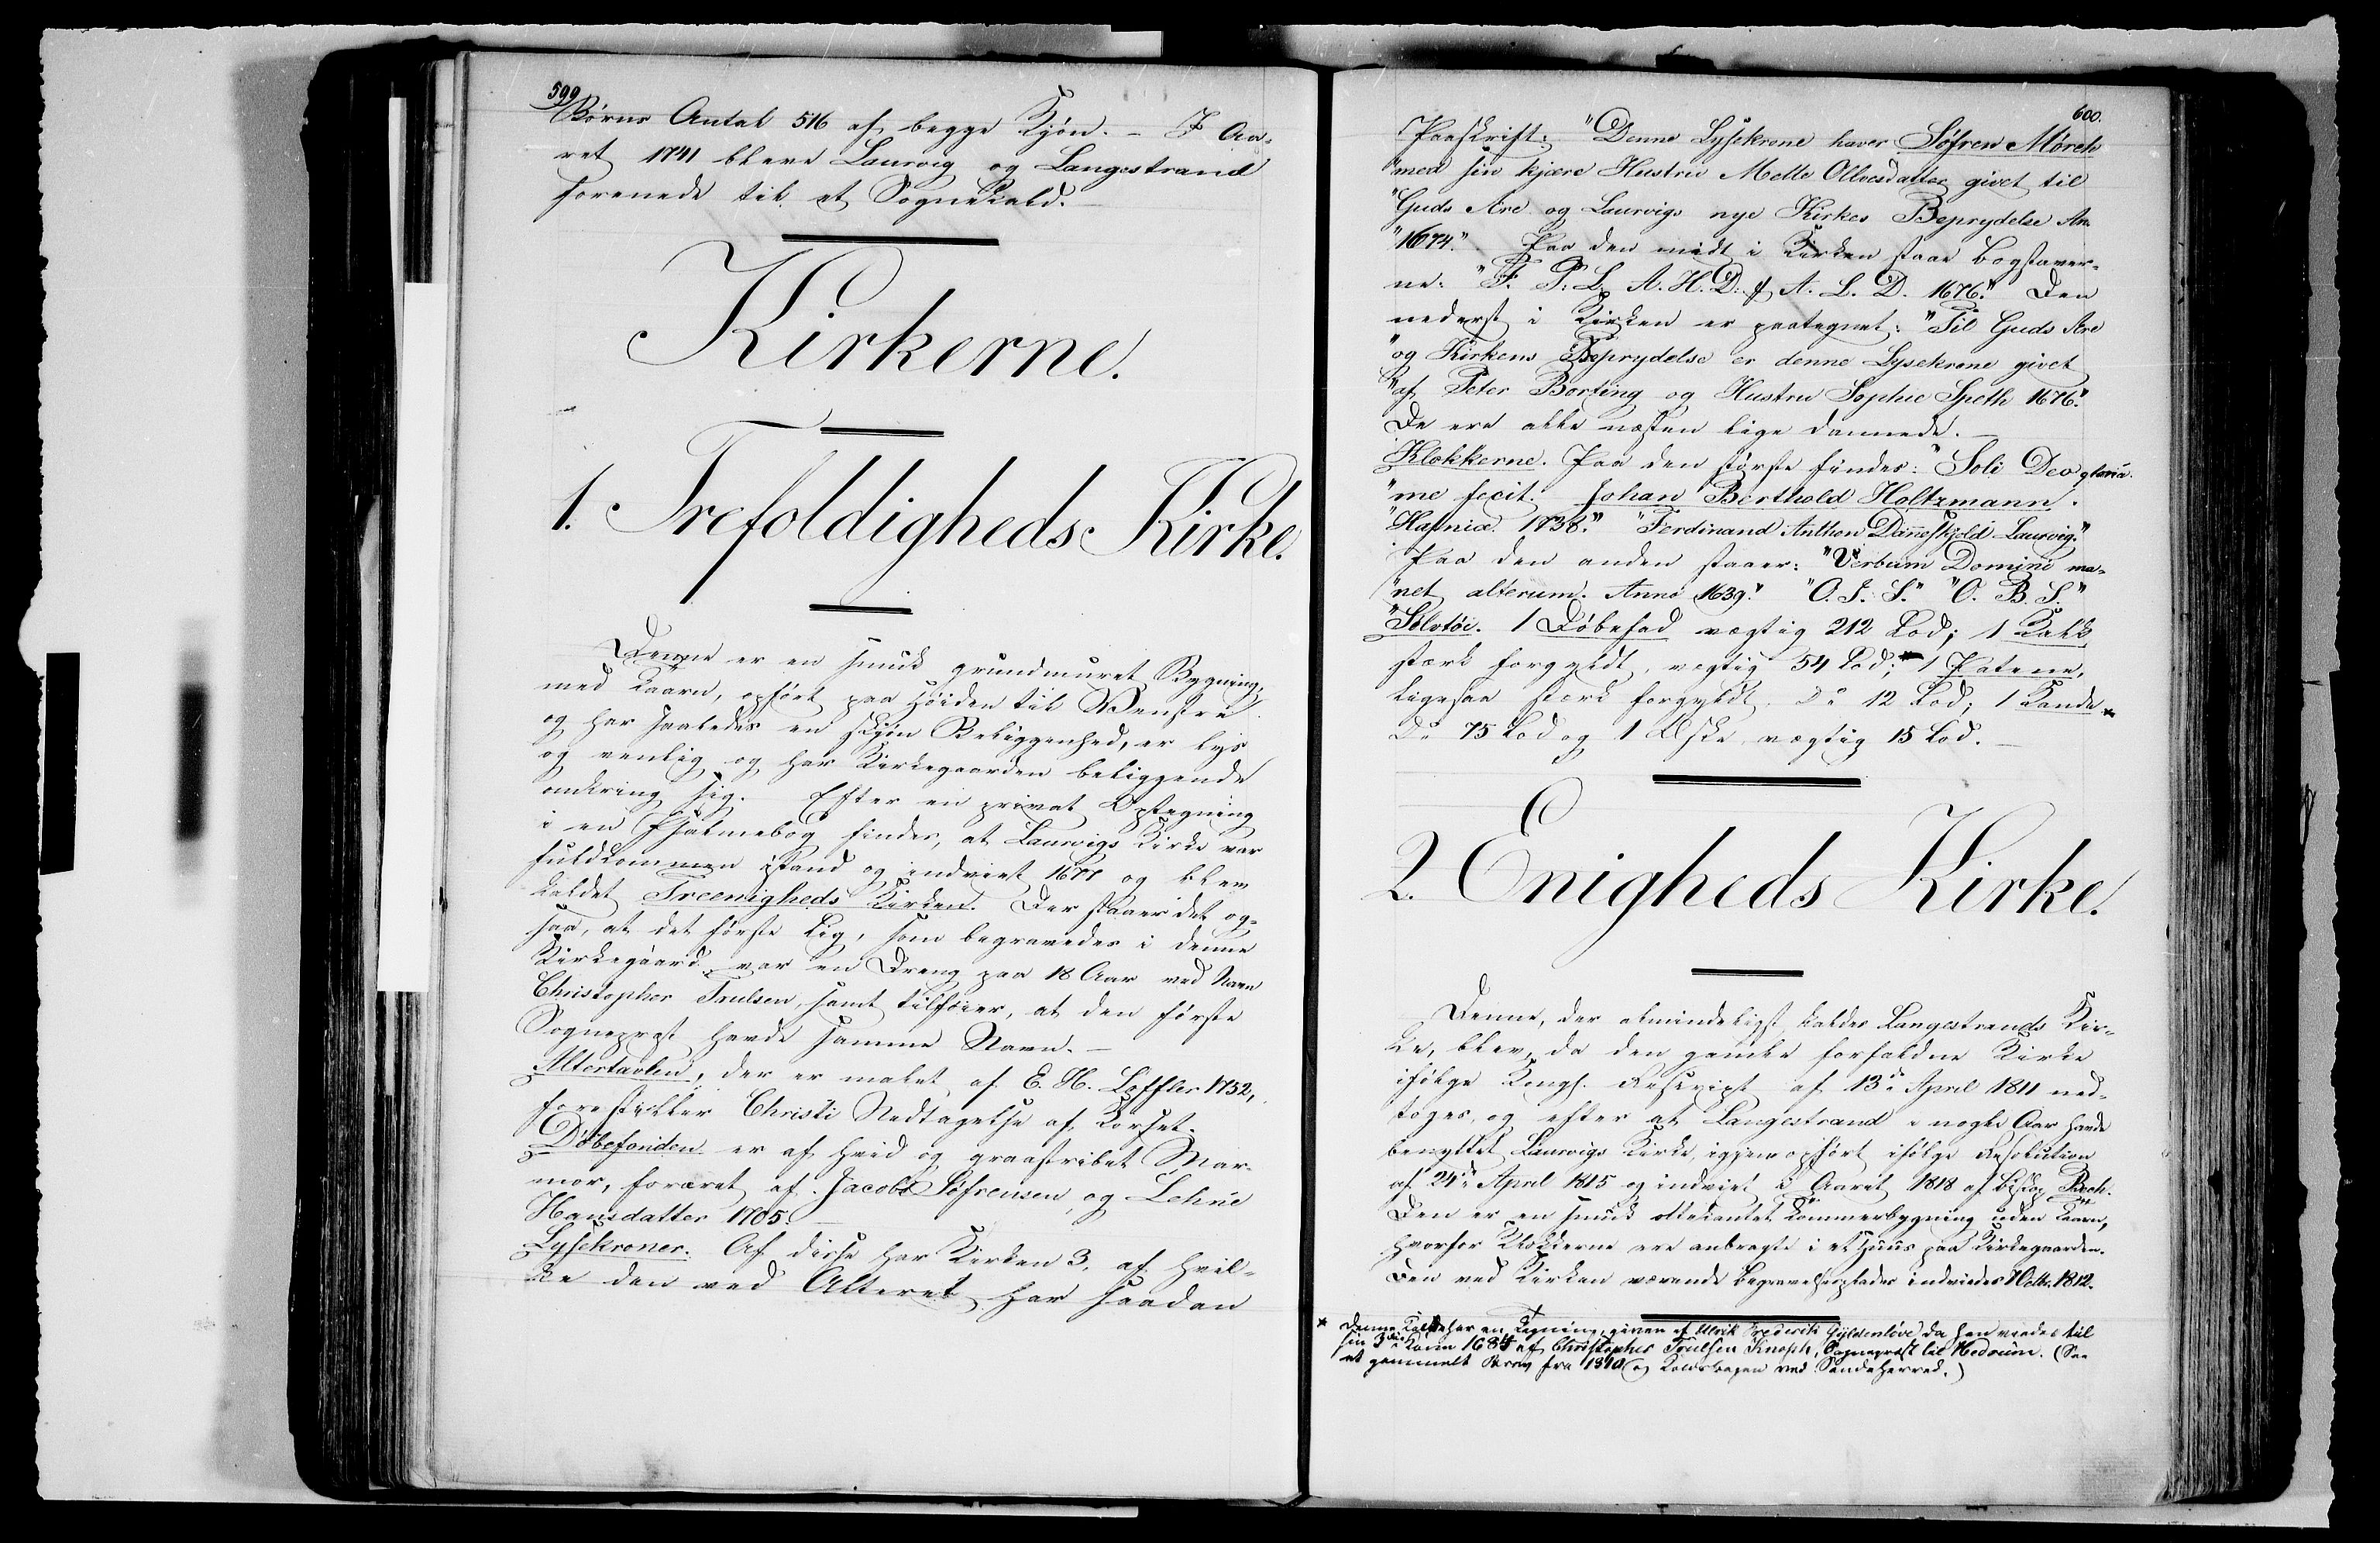 599
Børns Antal 516 af begge Kjøn. – I Aa-
ret 1741 bleve Laurvig og Langestrand
forenede til et Sognekald.
Kirkerne.
1. Trefoldigheds Kirke.
Denne er en smuk grundmuret Bygning,
med Taarn, opført paa Høiden til Venstre
og har saaledes en skjøn Beliggenhed, er lys
og venlig og har Kirkegaarden beliggende
omkring sig. Efter en privat Optegning
i en Psalmebog findes, at Laurvigs Kirke var
fuldkommen istand og indviet 1677 og blev
kaldet Treenigheds Kirken. Der staaer det og-
saa, at det første Lig, som begravedes i denne
Kirkegaard var en Dreng paa 18 Aar ved Navn
Christopher Trulsen, samt tilføier, at den første
Sognepræst havde samme Navn. –
Altertavlen, der er malet af E. H. Løffler 1732,
forestiller Christi Nedtagelse af Korset.
Døbefonden er af hvid og graastribet Mar-
mor, foræret af Jacob Søfrensen og Lehne
Hansdatter 1705. –
Lysekroner. Af disse har Kirken 3, af hvil-
ke den ved Alteret har saadan
600.
Paaskrift: "Denne Lysekrone haver Søfren Mørch
"med sin kjære Hustru Mette Ollvesdatter givet til
"Guds Ære og Laurvigs nye Kirkes Beprydelse An.
"1674." Paa den midt i Kirken staae Bogstaver-
ne: "F. P. L. A. H. D. & A. L. D. 1676." Den
nederst i Kirken er paategnet: "Til Guds Ære
"og Kirkens Beprydelse er denne Lysekrone givet
"af Peter Borting og Hustru Sophie Speth 1676."
De ere alle næsten lige dannede. –
Klokkerne. Paa den største findes: "Soli Deo gloria.
"me fecit. Johan Berthold Holtzmann.
"Hafniæ 1738." "Ferdinand Anthon Daneskjold Laurvig."
Paa den anden staaer: "Verbum Domini ma-
"net alterum. Anno 1639." "O. J. S." "O. B. S."
Sølvtøi. 1 Døbefad vægtig 212 Lod; 1 Kalk
stærk forgyldt, vægtig 54 Lod; * 1 Patene,
ligesaa stærk forgyldt, do 12 Lod; 1 Kande *
do 75 Lod og 1 Æske vægtig 15 Lod. –
2. Enigheds Kirke.
Denne, der almindeligst kaldes Langestrands Kir-
ke, blev, da den gamle forfaldne Kirke
ifølge Kongl. Rescript af 13de April 1811 ned-
toges, og efter at Langestrand i nogle Aar havde
benyttet Laurvigs Kirke, igjen opført ifølge Resolution
af 24de April 1815 og indviet i Aaret 1818 af Biskop Bech.
Den er en smuk ottekantet Tømmerbygning uden Taarn,
hvorfor Klokkerne ere anbragte i et Huus paa Kirkegaarden.
Den ved Kirken værende Begravelsesplads indviedes 7 Octb. 1812.
* Denne Kalk har en Tegning, given af Ulrik Frederik Gyldenløve da han viedes til
sin 3die Kone 1685 af Christopher Trulsen Knoph, Sognepræst til Hedrum. (See
et gammelt Brev fra 1840 og Kaldsbogen ved Sandeherred.)